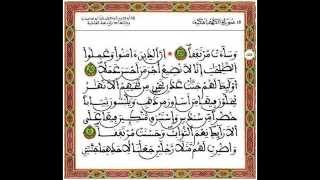 وَسَآءَتْ مُرْتَفَقًا إِنَّ اَ۬لذِينَ ءَامَنُواْ وَعَمِلُواْ
اُ۬لصَّٰلِحَٰتِ إِنَّا لَا نُضِيعُ أَجْرَ مَنْ أَحْسَنَ عَمَلًا
أُوْلَٰٓئِكَ لَهُمْ جَنَّٰتُ عَدْنٍ تَجْرِي مِن تَحْتِهِمُ اُ۬لَانْهَٰرُ
يُحَلَّوْنَ فِيهَا مِنْ أَسَاوِرَ مِن ذَهَبٍ وَيَلْبَسُونَ ثِيَابًا
خُضْرًا مِّن سُندُسٍ وَإِسْتَبْرَقٍ مُّتَّكِـِٕينَ فِيهَا عَلَى
اَ۬لَارَآئِكِ نِعْمَ اَ۬لثَّوَابُ وَحَسُنَتْ مُرْتَفَقًا
وَاضْرِبْ لَهُم مَّثَلًا رَّجُلَيْنِ جَعَلْنَا لِأَحَدِهِمَا جَنَّتَيْنِ